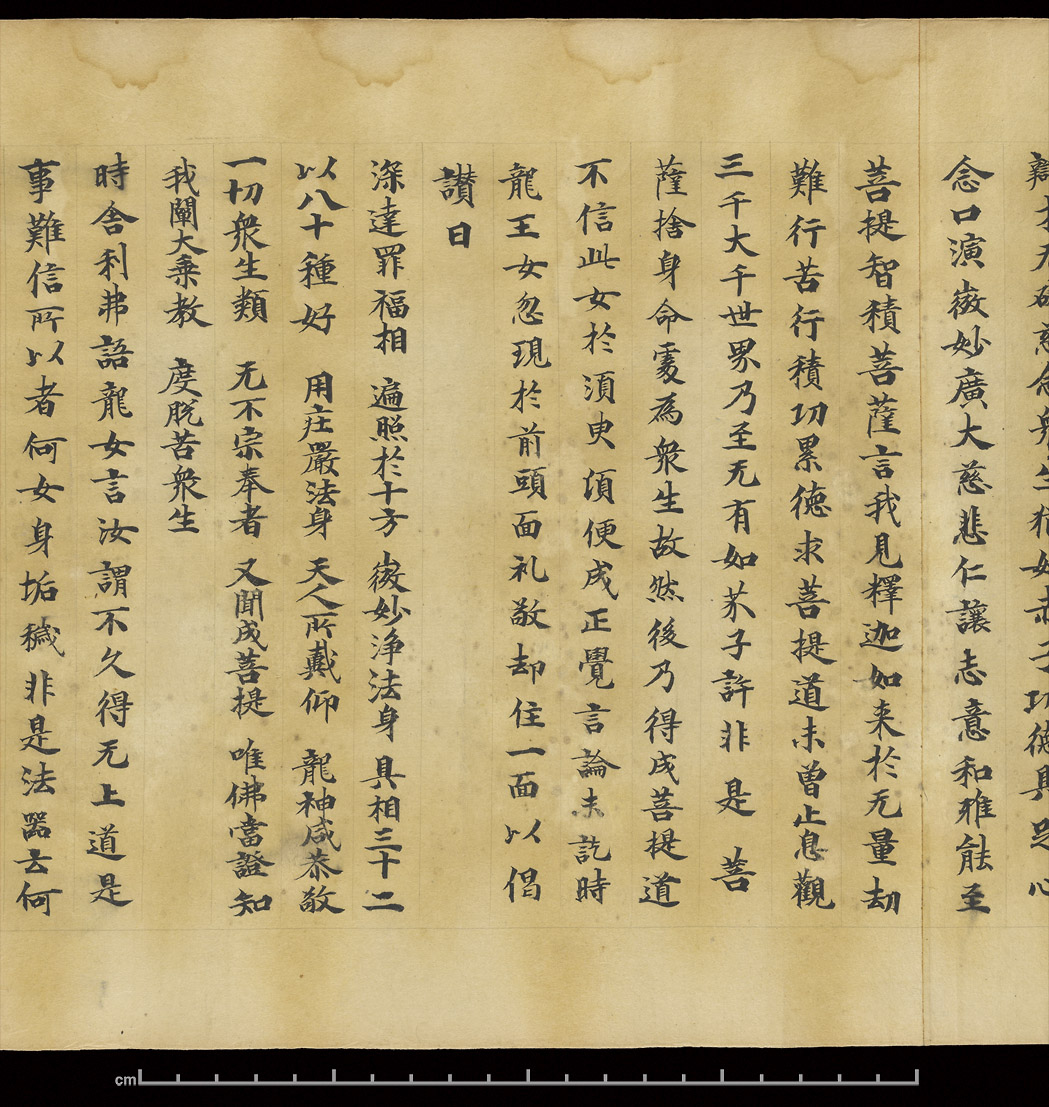 辯才无礙慈念衆生猶如赤子功德具足心
念口演微妙廣大慈悲仁讓志意和雅能至
菩提智積菩薩言我見釋迦如来於无量劫
難行苦行積功累德求菩提道未曾止息觀
三千大千世界乃至无有如芥子許非是菩
薩捨身命處為衆生故然後乃得成菩提道
不信此女於須臾頃便成正覺言論未訖時
龍王女忽現於前頭面礼敬却住一面以偈
讃曰
深達罪福相 遍照於十方 微妙浄法身 具相三十二
以八十種好 用庄嚴法身 天人所戴仰 龍神咸恭敬
一切衆生類 无不宗奉者 又聞成菩提 唯佛當證知
我闡大乗教 度脱苦衆生
時舍利弗語龍女言汝謂不久得无上道是
事難信所以者何女身垢穢非是法器云何
cm